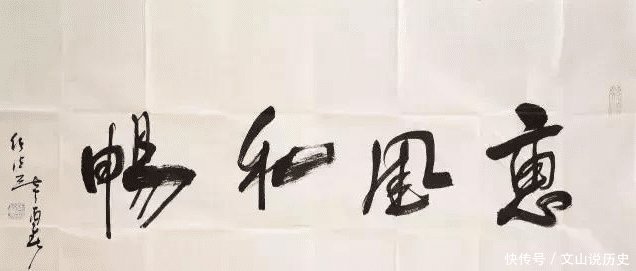 惠風和暢
辛酉春
快传号 / 文山说历史